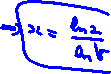 → x = ln 2 / ln r